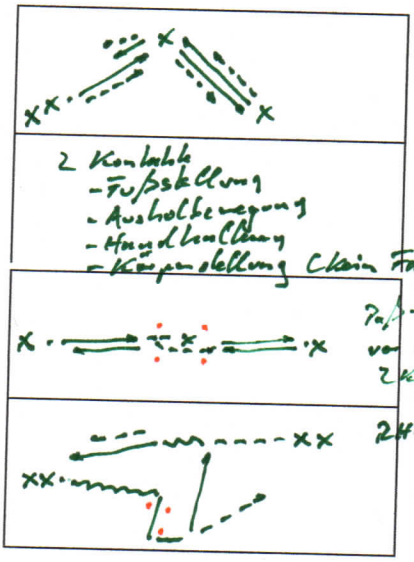 2 Kontakte
- Fußstellung
- Ausholbewegung
- Handhaltung
- Körperstellung (kein
2